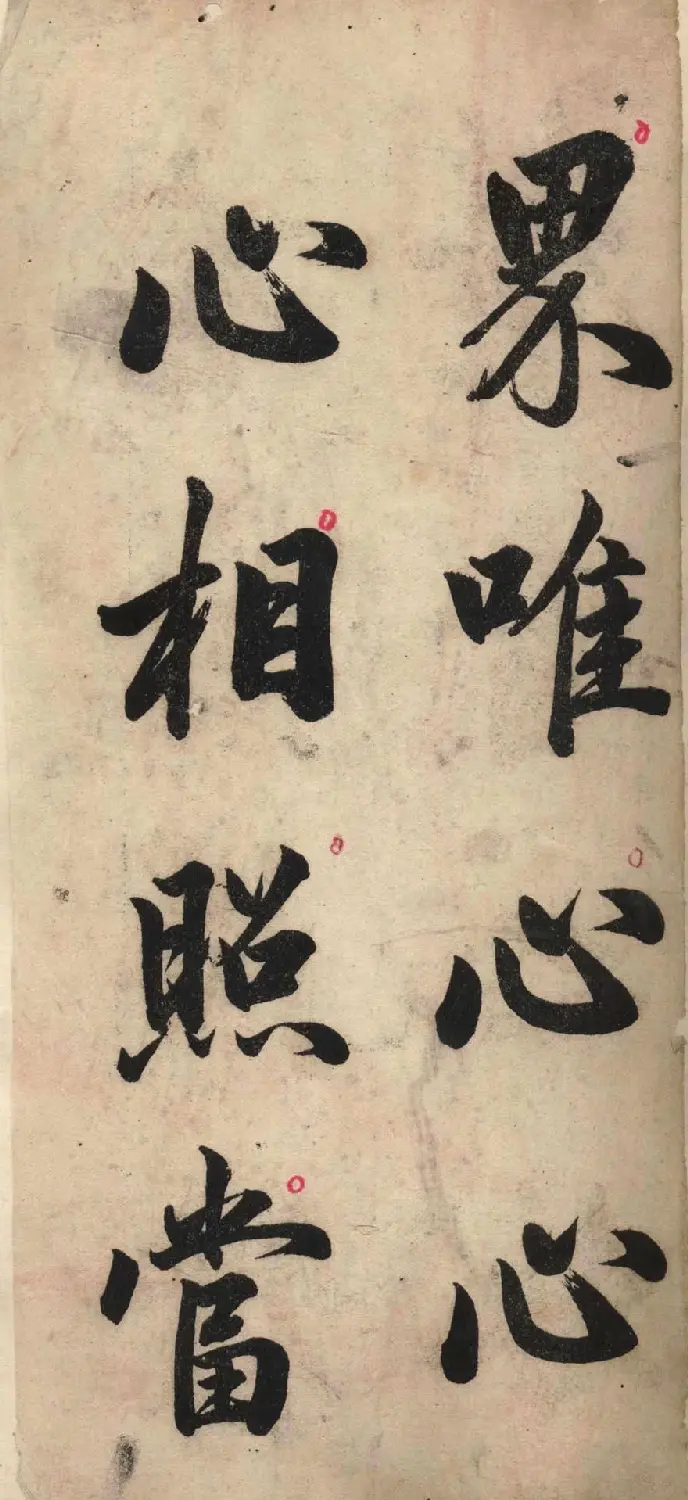 界唯心心
心相照當